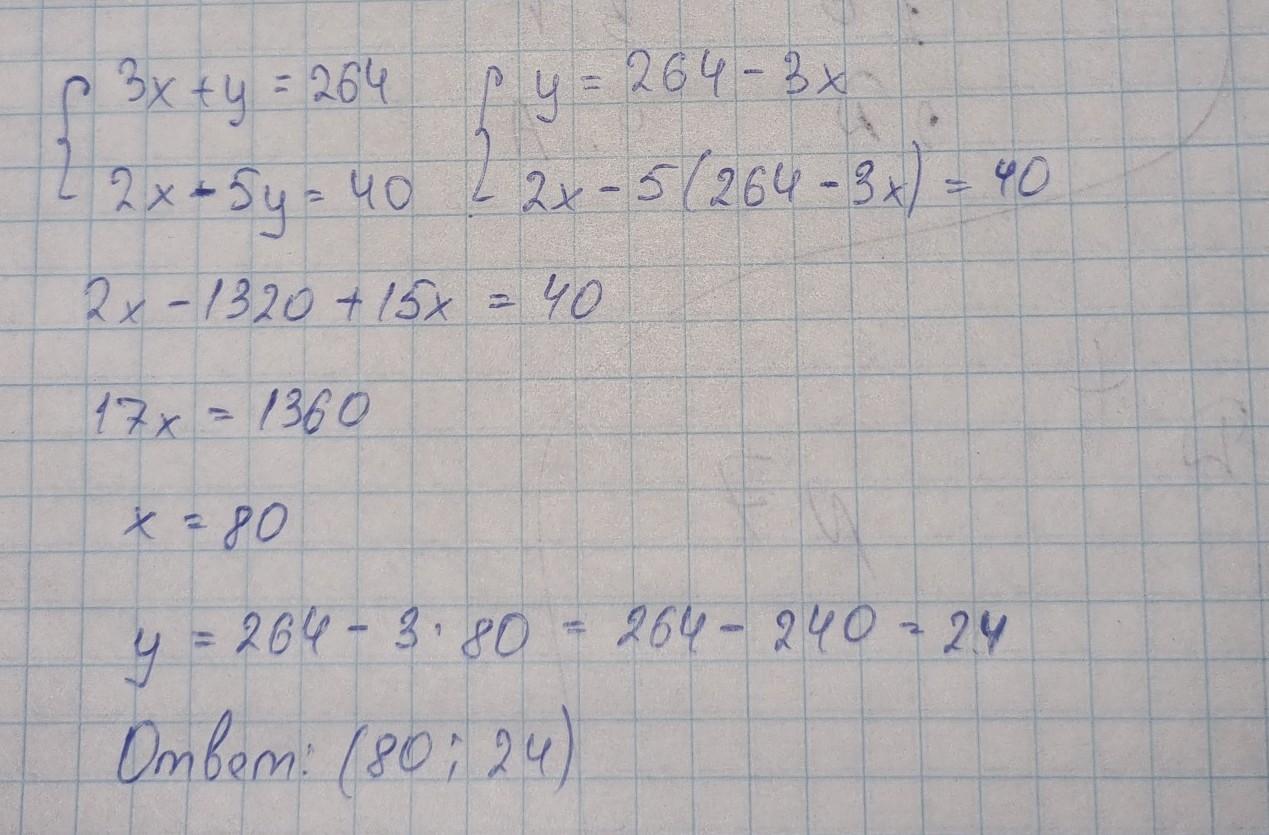 3x + y = 264 y = 264 - 3x
2x - 5y = 40 2x - 5(264 - 3x) = 40
2x - 1320 + 15x = 40
17x = 1360
x = 80
y = 264 - 3 · 80 = 264 - 240 = 24
Ответ: (80; 24)